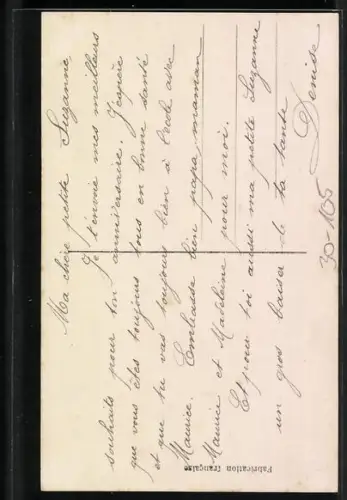 Ma chère petite Suzanne,
Je t'envoie mes meilleurs
souhaits pour ton anniversaire. J'espère
que vous êtes toujours tous en bonne santé
et que tu vas toujours bien à l'école avec
Maurice. Embrasse bien papa, maman
Maurice et Madeleine pour moi.
Et pour toi aussi ma petite Suzanne
un gros baiser de ta tante
Denise
30-105
Fabrication française